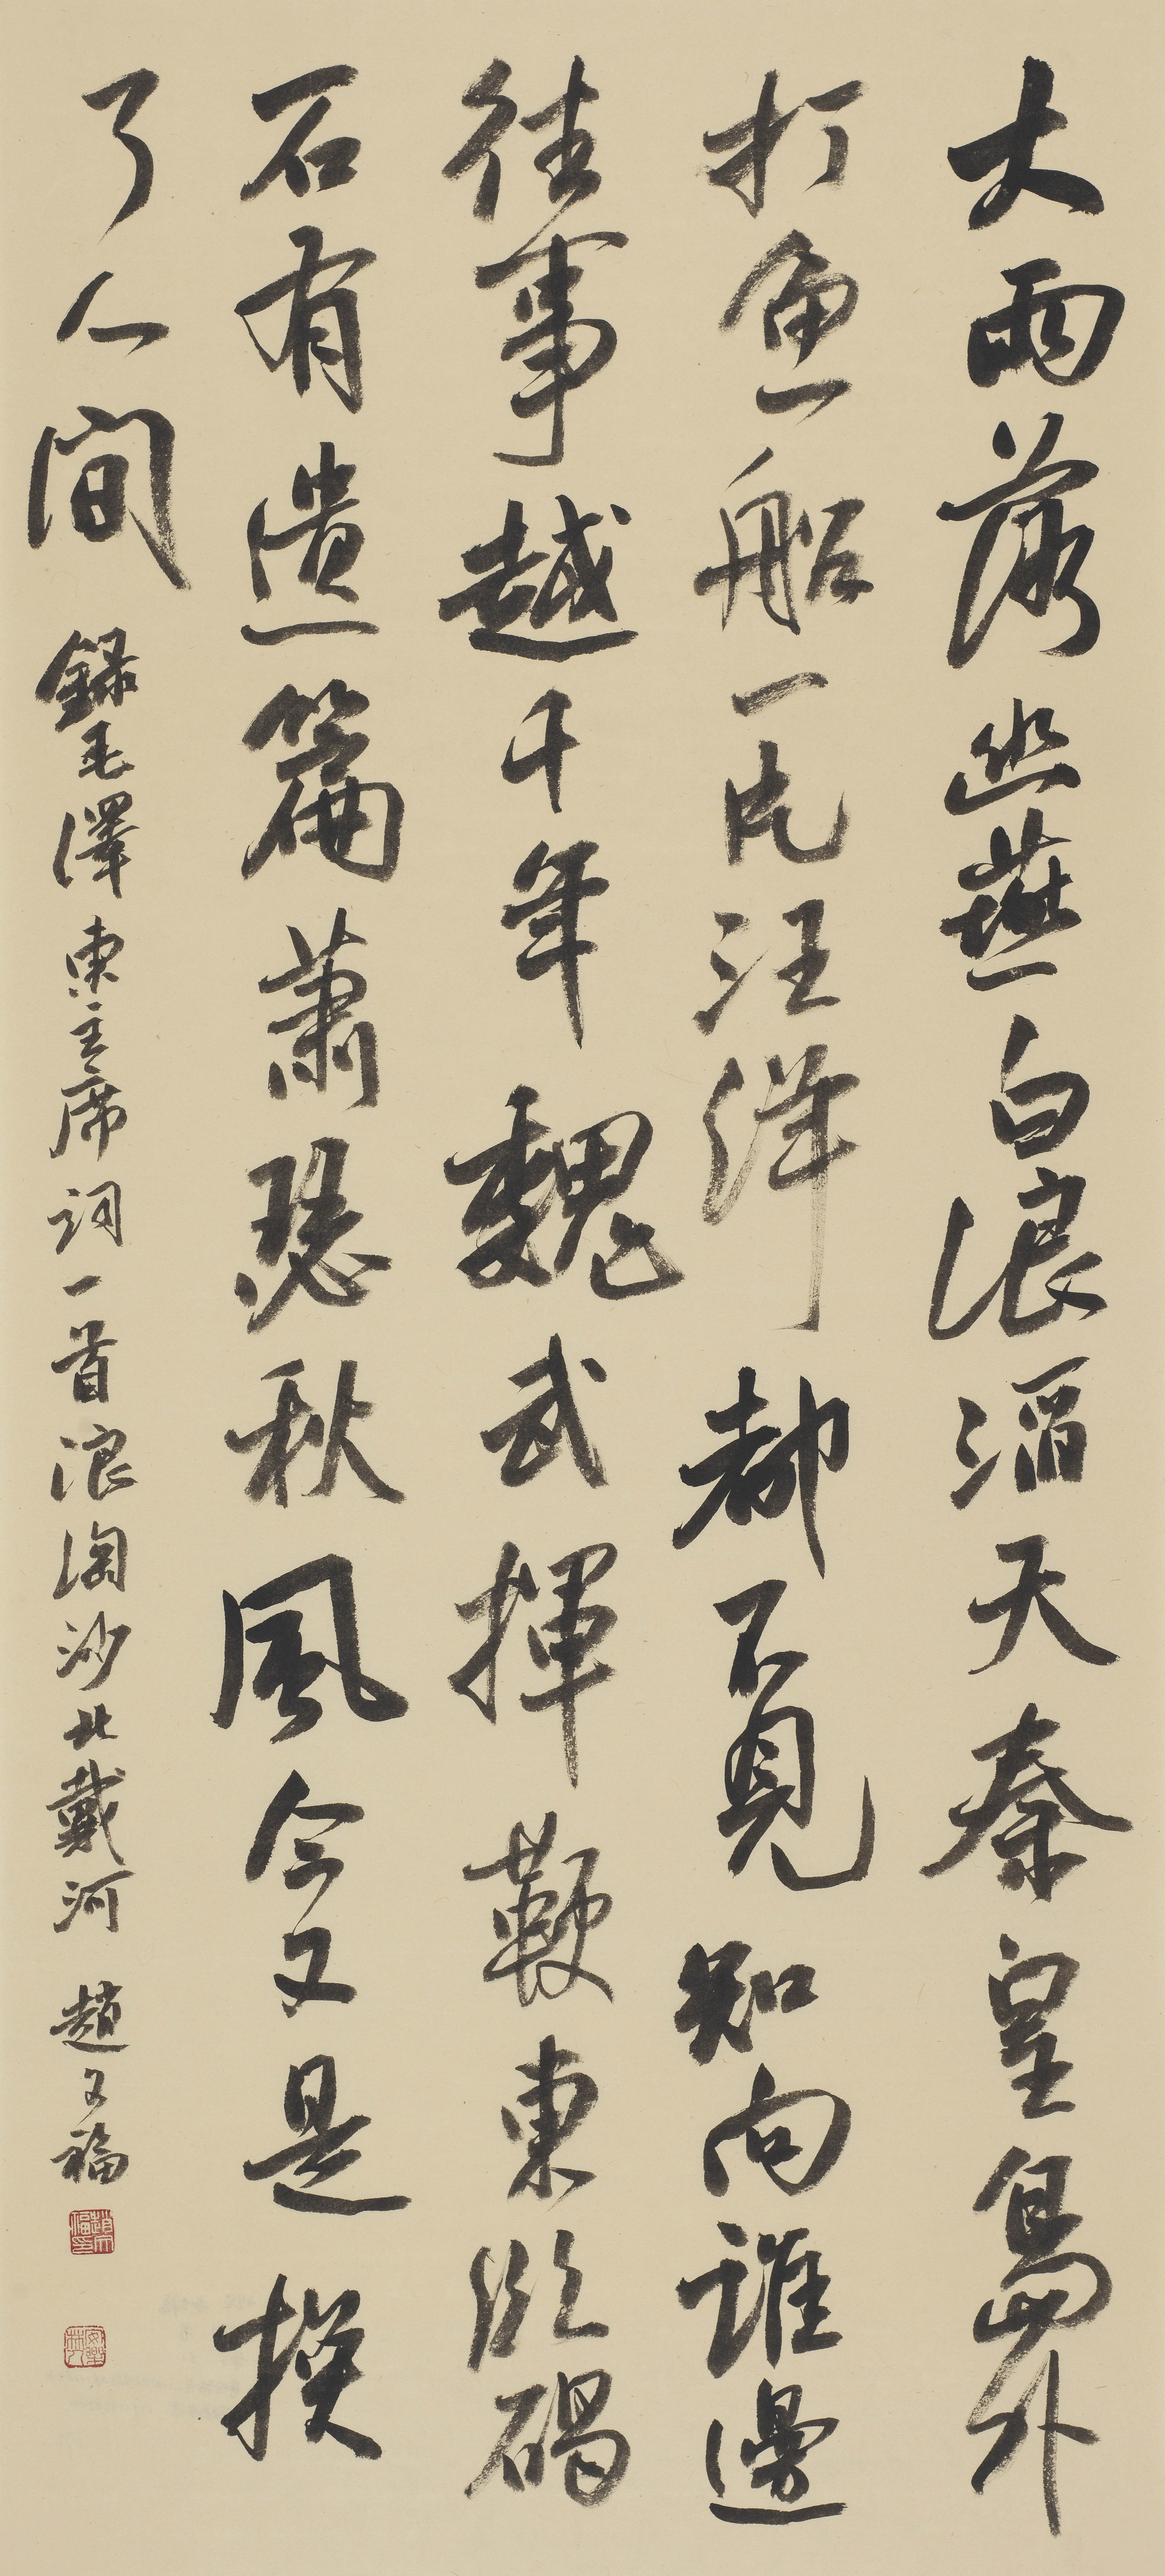 大雨落幽燕白浪滔天秦皇島外
打魚船一片汪洋都不見知向誰邊
往事越千年魏武揮鞭東臨碣
石有遺篇蕭瑟秋風今又是換
了人間 錄毛澤東主席詞一首浪淘沙北戴河 趙文福